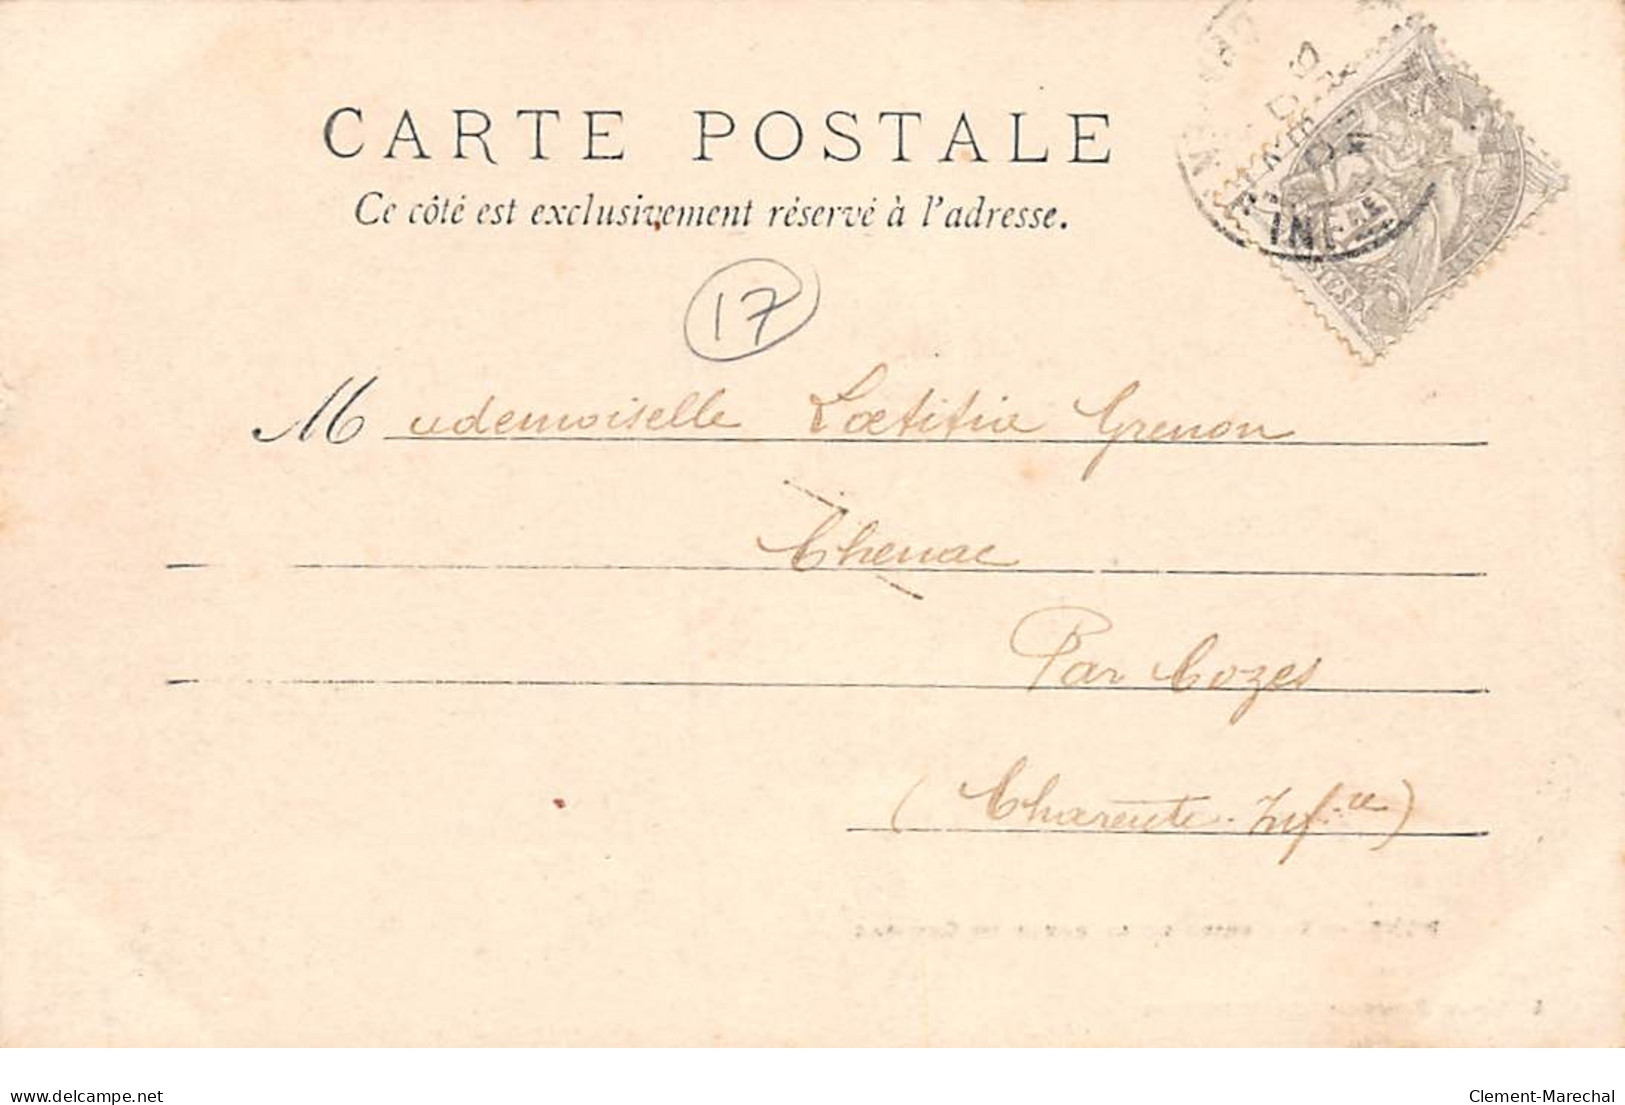 CARTE POSTALE
Ce côté est exclusivement réservé à l'adresse.
17
Mademoiselle Lœtitia Grenon
Chenac
Par Cozes
(Charente-Inf.re)
delcampe.net
Clement-Marechal